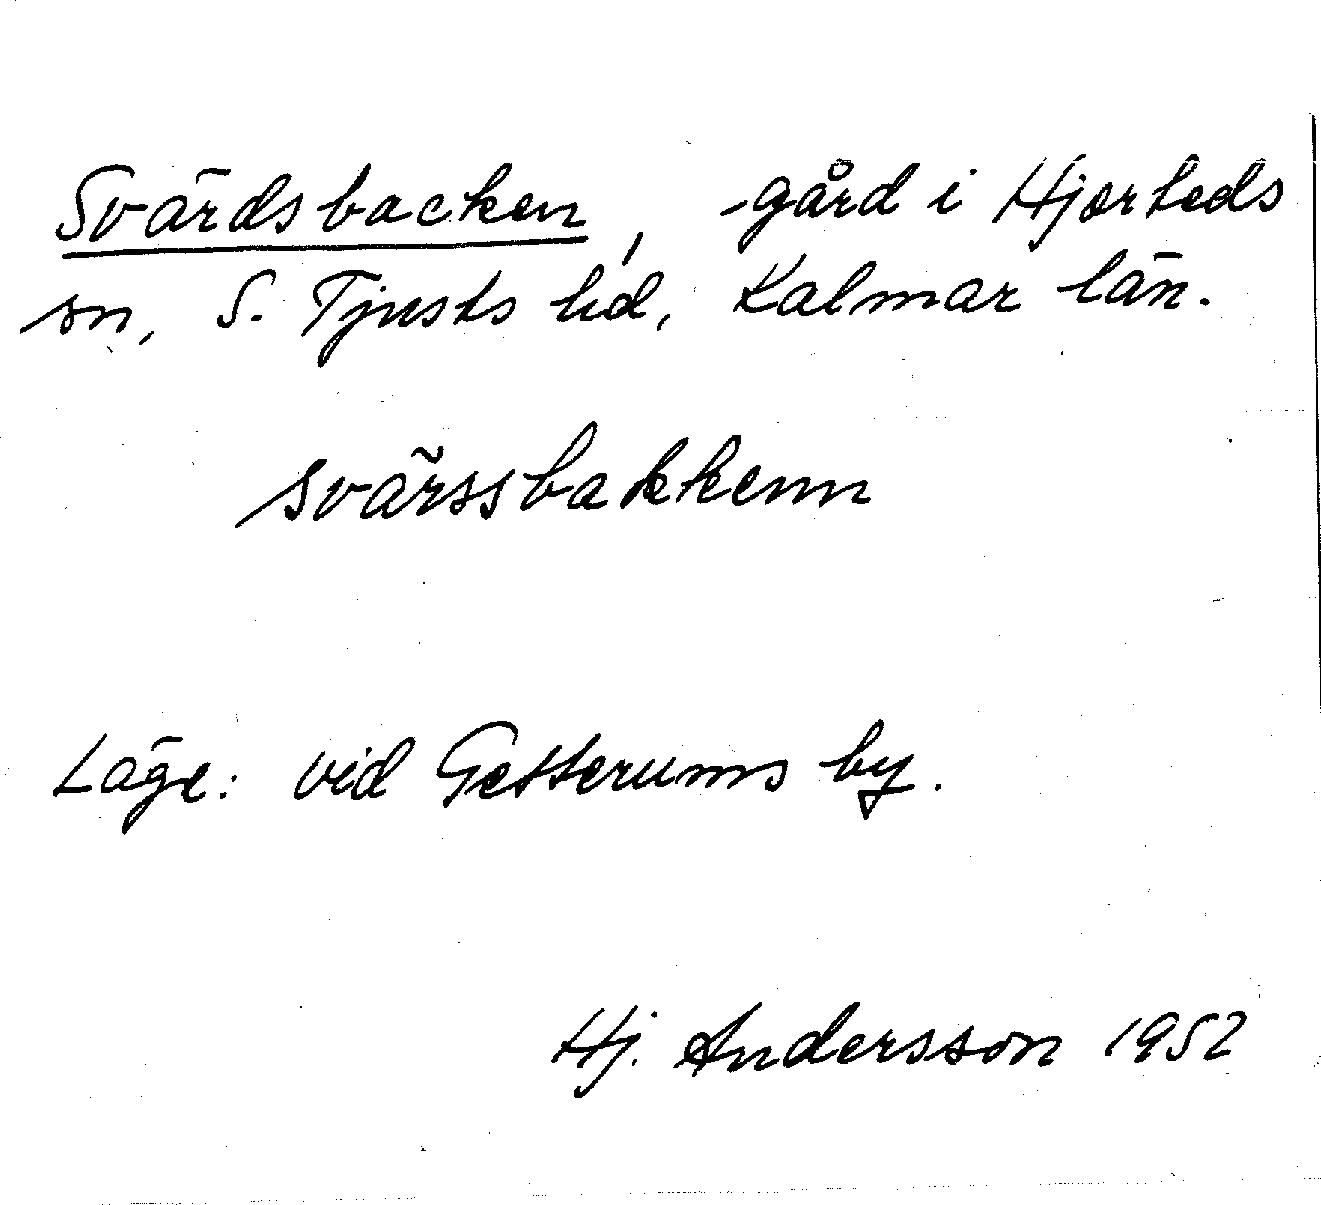 Svärdsbacken, gård i Hjorteds
sn, S. Tjusts hd, Kalmar län.
svärssbakkenn
Läge: vid Getterums by.
Hj. Andersson 1952